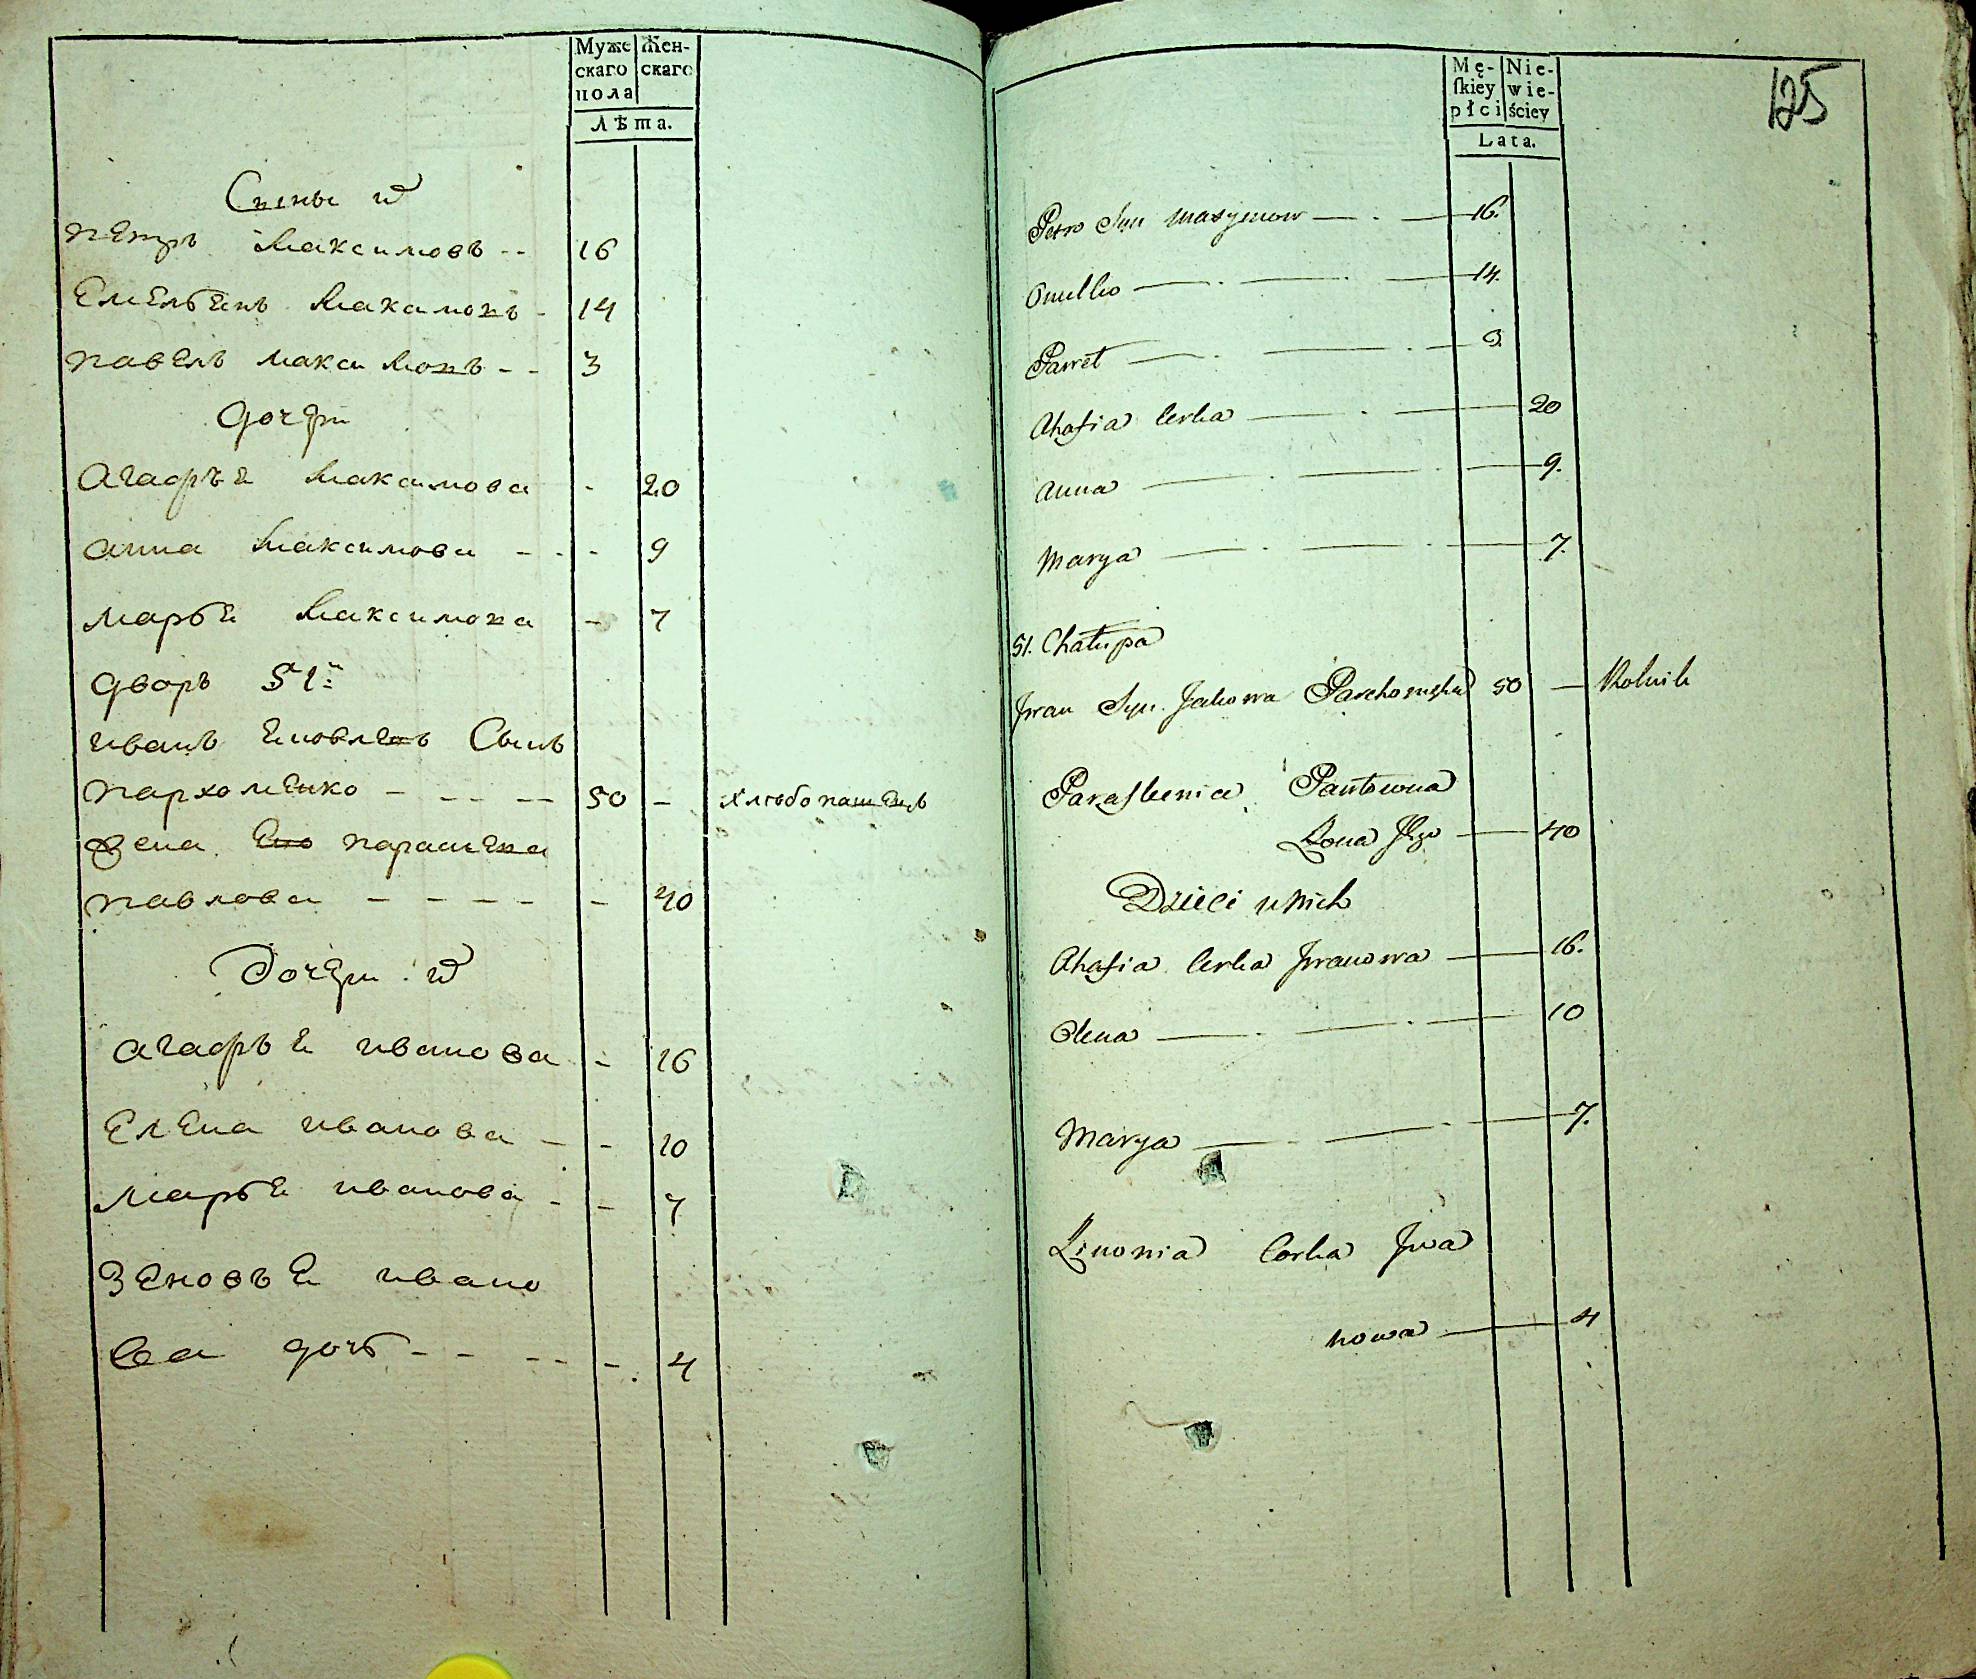 Муже скаго пола
Жен- скаго
Лѣта.
Сыны ихъ
Петръ Максимовъ -- 16
Емельянъ Максимовъ - 14
Павелъ Максимовъ -- 3
Дочери
Агафья Максимова - 20
Анна Максимова - - - 9
Марья Максимова - 7
Дворъ 51й
Иванъ Яковлевъ Сынъ
Пархоменко - - - -- 50 - Хлебопашецъ
Жена Его Параскева
Павлова - - - - - - 40
Дочери ихъ
Агафья Иванова - 16
Елена Иванова - - 10
Марья Иванова - - 7
Зеновья Ивано
ва дочь - - - - - 4
Mę- skiey płci
Nie- wie- ściey
Lata.
125
Petro Syn Maxymow — . — 16.
Omelko — . — . — 14.
Paweł — . — . — 3.
Ahafia Corka — . — 20
Anna — . — . — 9.
Marya — . — . — 7.
51. Chałupa
Jwan Syn Jakowa Parchomenko 50 — Rolnik
Paraskewia Pawłowna
Żona Jego — 40
Dzieci u Nich
Ahafia Corka Jwanowa — 16.
Olena — . — . — 10
Marya — . — . — 7.
Zinowia Corka Jwa
nowa — 4